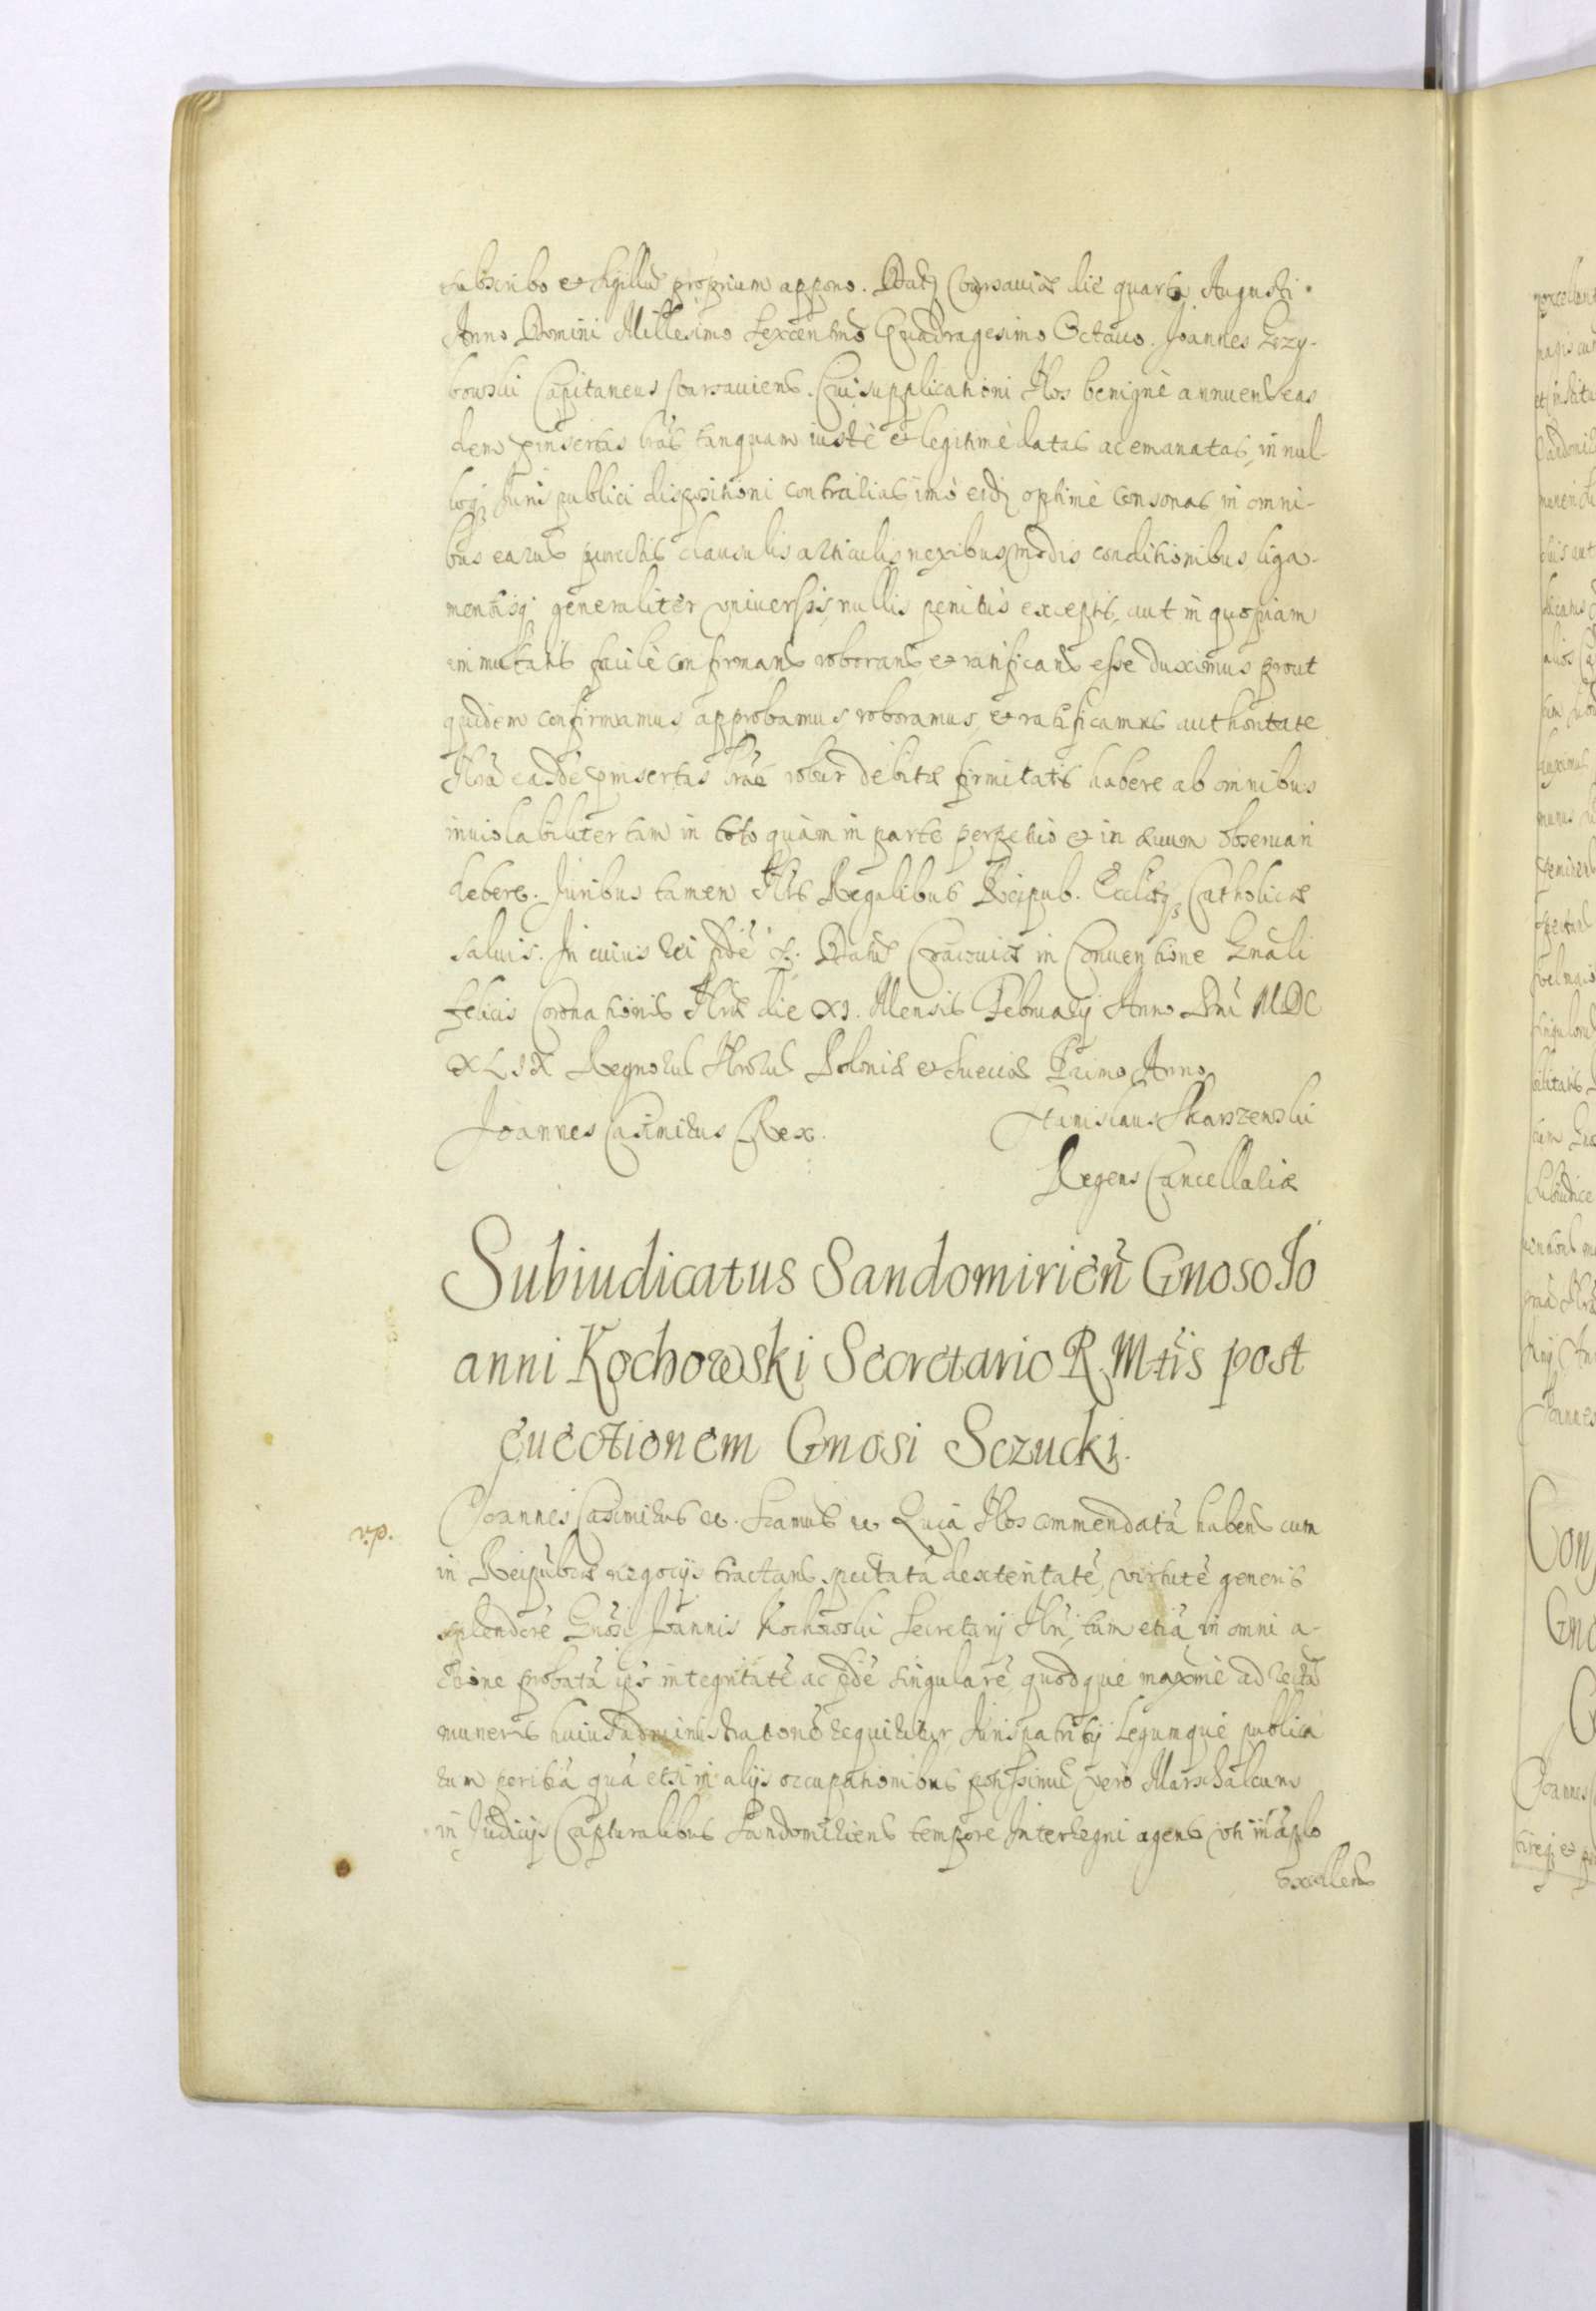 subscribo et sigillũ proprium appono. Datũ Varsauiæ die quarta Augusti.
Anno Domini Millesimo Sexcentmo Quadragesimo Octauo. Joannes Grzy-
bowski Capitaneus Varsauiens. Cui supplicationi Nos benignè annuens eas
dem pinsertas lras tanquam iustè et legitimè datas ac emanatas, in nul-
loq; Juris publici dispositioni contrarias imò eidẽ optimè consonas in omni-
bus earũ punctis clausulis articulis nexibus modis conditionibus liga-
mentisq; generaliter vniuersis, nullis penitùs exceptis, aut in quopiam
immutatis facilè confirmand roborand et ratificand esse duximus prout
quidem confirmamus approbamus roboramus et ratificamus authoritate
Nrã easdẽ pinsertas lras robur debitæ firmitatis habere ab omnibus
inuiolabiliter tam in toto quàm in parte perpetuò et in æuum obseruari
debere. Juribus tamen Nris Regalibus Reipub. Eccliæq; Catholicæ
saluis. In cuius rei fidẽ &. Datũ Cracouiæ in Conuentione Gnãli
felicis Coronationis Nræ die XI. Mensis Februarij Anno Dni MDC
XLIX Regnorũ Nrorũ Poloniæ et Sueciæ Primo Anno
Joannes Casimirus Rex. Stanislaus Skarszewski
Regens Cancellariæ
Subiudicatus Sandomirień Gnoso Jo
anni Kochowski Secretario R Mtis post
euectionem Gnosi Sczucki.
v.p. Joannes Casimirus &. Sñamus && Quia Nos commendatã habens cum
in Reipublcæ negocijs tractand spectatã dexteritatẽ, virtutẽ generis
splendorẽ Gnosi Joannis Kochowski Secretarij Nri, tum etiã in omni a-
ctione probatã ips integritatẽ ac fidẽ singularẽ, quodque maximè ad rectã
muneris huius administrationẽ requiritur, Juris patrij Legumque publica
rum peritiã quã etsi in alijs occupationibus potissimũ verò Marschalcum
in Judicijs Capturalibus Sandomiriens tempore Interregni agens vti in aplo
excellens